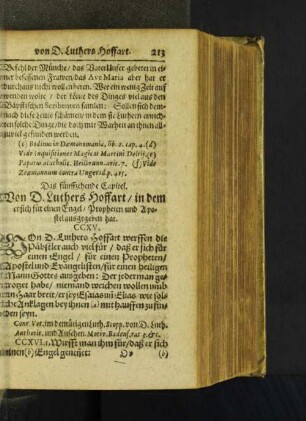 von D. Luthers Hoffart. 213
Befehl der Münche / das Vater Unser gebetet in ei-
ner besessenen Frawen / das Ave Maria aber hat er
durchaus nicht wollen beten. Wer ein wenig Zeit auf
wenden wolte / der köne des Dinges viel aus den
Bäpstischen Scribenten samlen: Sollen sich dem-
nach diese Leute schämen / in dem sie Luthern
solche Dinge / die doch mit Warheit an ihnen all-
zuviel gefunden werden.
(c) Bodinus in Dæmonomania, lib. 2. cap. 4. (d)
Vide Inquisitiones Magicas Martini Delrij. (e)
Papatu acatholic. Heilbrunn. art. 7. (f) Vide
Zeæmannum contra Ungersd. p. 415.
Das funffzehende Capitel.
Von D. Luthers Hoffart / in dem
er sich für einen Engel / Propheten und Apo-
stel ausgegeben hat.
CCXV.
VOn D. Luthers Hoffart werffen die
Päbstler auch viel für / daß er sich für
einen Engel / für einen Propheten /
Apostel und Evangelisten / für einen heiligen
Mann Gottes ausgeben: Der jederman ge-
trotzet habe / niemand weichen wollen umb
ein Haar breit / er sey Esaias und Elias. wie solche
Anklagen bey ihnen (a) mit hauffen zu fin-
den seyn.
Conr. Vet. im demütigen Luth. Scopp. von D. Luth.
Authorit. und Ansehen. Motiv. Badens. tat p. 471.
CCXVI. 1. Wirfft man ihm für / daß er sich
einen (b) Engel genenet: O (b)